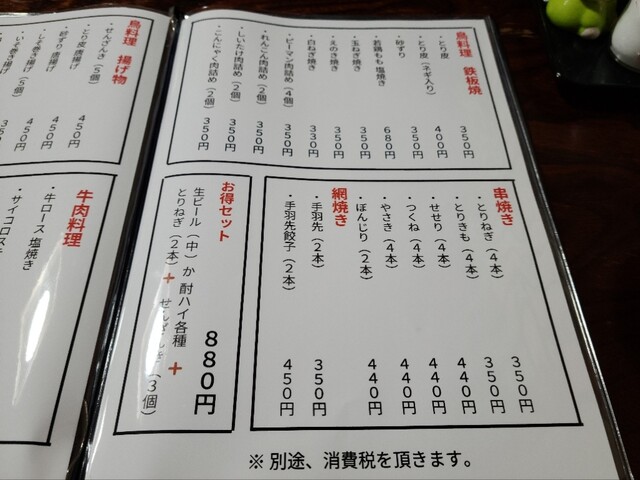 鳥料理 鉄板焼
・とり皮 350円
・とり皮（ネギ入り） 400円
・砂ずり 350円
・若鶏もも塩焼き 680円
・玉ねぎ焼き 350円
・えのき焼き 350円
・白ねぎ焼き 330円
・ピーマン肉詰め（4個） 350円
・れんこん肉詰め（2個） 350円
・しいたけ肉詰め（2個） 350円
・こんにゃく肉詰め（2個） 350円
串焼き
・とりねぎ（4本） 350円
・とりきも（4本） 350円
・せせり（4本） 440円
・つくね（4本） 440円
・やさき（4本） 440円
・ぼんじり（2本） 440円
網焼き
・手羽先（2本） 350円
・手羽先餃子（2本） 450円
お得セット
生ビール（中）か 酎ハイ各種 +
とりねぎ（2本）+ せんざんき（3個）
880円
※ 別途、消費税を頂きます。
鳥料理 揚げ物
・せんざんき（5個）
・とり皮唐揚げ 450円
・砂ずり唐揚げ 450円
・しそ巻き揚げ 450円
・いそ巻き揚げ（5個）
牛肉料理
・牛ロース 塩焼き
・サイコロス